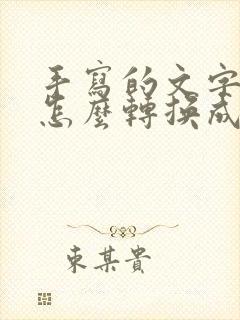 手寫的文字
怎麼轉換成
東某貴